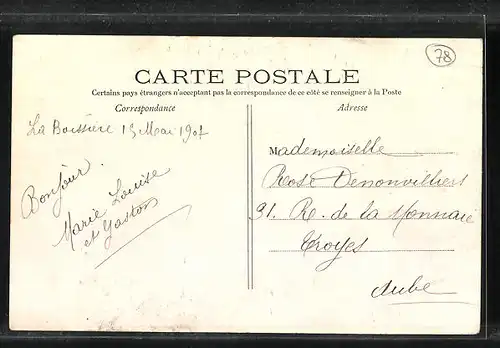 78
CARTE POSTALE
Certains pays étrangers n'acceptant pas la correspondance de ce côté se renseigner à la Poste
Correspondance
Adresse
La Boissière 13 Mai 1907
Bonjour.
Marie Louise
et Gaston
Mademoiselle
Rose Denonvilliers
91. R. de la Monnaie
Troyes
Aube